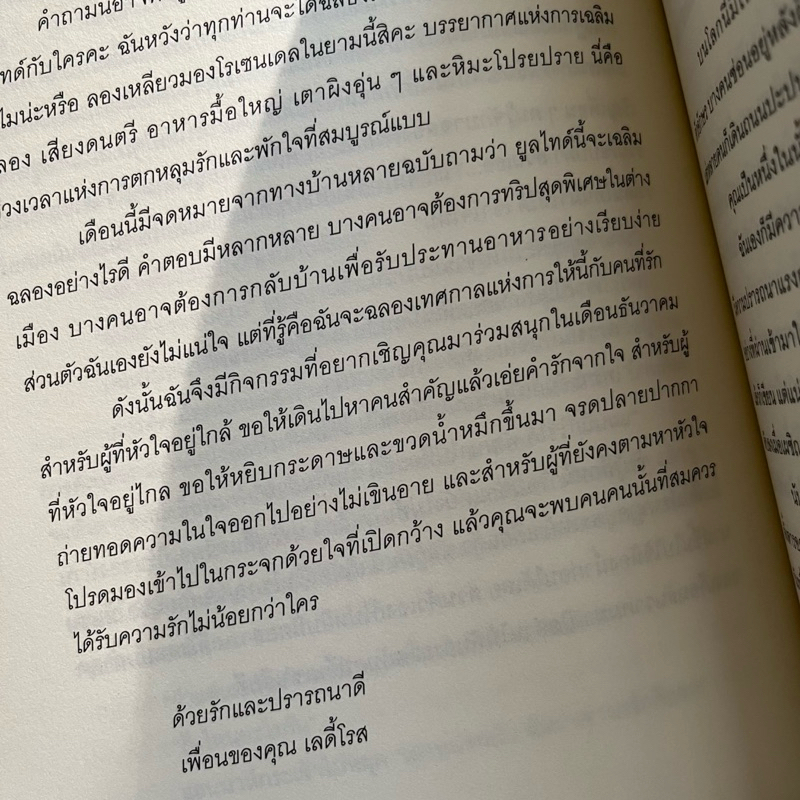 คำถามนี้อาจ
ไทด์กับใครคะ ฉันหวังว่าทุกท่านจะได้ฉลอง
ไมน่ะหรือ ลองเหลียวมองโรเซนเดลในยามนี้สิคะ บรรยากาศแห่งการเฉลิม
ลอง เสียงดนตรี อาหารมื้อใหญ่ เตาผิงอุ่น ๆ และหิมะโปรยปราย นี่คือ
วงเวลาแห่งการตกหลุมรักและพักใจที่สมบูรณ์แบบ
เดือนนี้มีจดหมายจากทางบ้านหลายฉบับถามว่า ยูลไทด์นี้จะเฉลิม
ฉลองอย่างไรดี คำตอบมีหลากหลาย บางคนอาจต้องการทริปสุดพิเศษในต่าง
เมือง บางคนอาจต้องการกลับบ้านเพื่อรับประทานอาหารอย่างเรียบง่าย
ส่วนตัวฉันเองยังไม่แน่ใจ แต่ที่รู้คือฉันจะฉลองเทศกาลแห่งการให้นี้กับคนที่รัก
ดังนั้นฉันจึงมีกิจกรรมที่อยากเชิญคุณมาร่วมสนุกในเดือนธันวาคม
สำหรับผู้ที่หัวใจอยู่ใกล้ ขอให้เดินไปหาคนสำคัญแล้วเอ่ยคำรักจากใจ สำหรับผู้
ที่หัวใจอยู่ไกล ขอให้หยิบกระดาษและขวดน้ำหมึกขึ้นมา จรดปลายปากกา
ถ่ายทอดความในใจออกไปอย่างไม่เขินอาย และสำหรับผู้ที่ยังคงตามหาหัวใจ
โปรดมองเข้าไปในกระจกด้วยใจที่เปิดกว้าง แล้วคุณจะพบคนคนนั้นที่สมควร
ได้รับความรักไม่น้อยกว่าใคร
ด้วยรักและปรารถนาดี
เพื่อนของคุณ เลดี้โรส
บนโลกนี้มี
บางคนซ่อนอยู่หลัง
คุณเป็นหนึ่งใน
ฉันเองก็มีความ